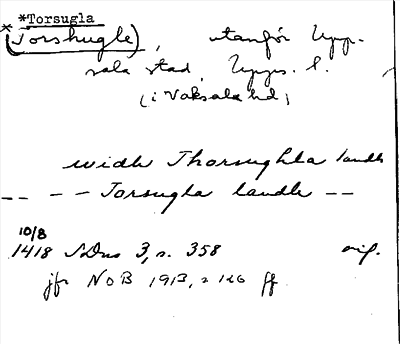 *Torsugla
*(Torshugle), utanför Upp-
sala stad, Upps. l.
(i Vaksala hd)
widh Thorsughla landh
-- -- Torsugla landh --
10/8
1418 SDns 3, s. 358 orig.
jfr NoB 1913, s 126 ff